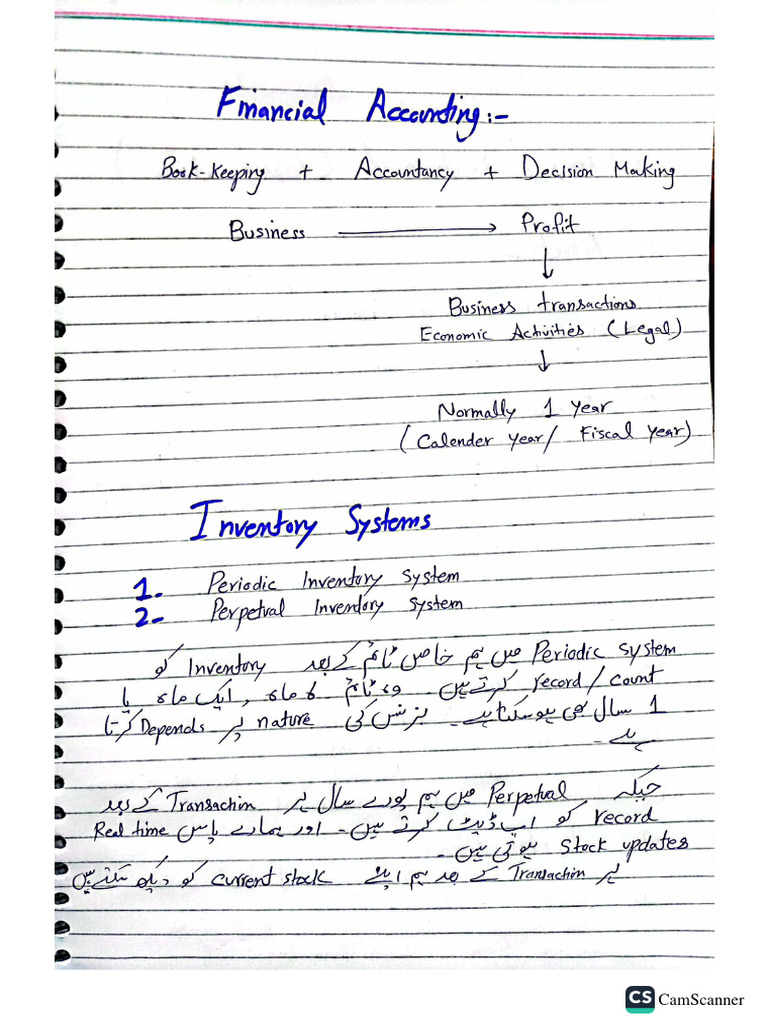 Financial Accounting:-
Book-Keeping + Accountancy + Decision Making
Business → Profit
↓
Business transactions
Economic Activities (Legal)
↓
Normally 1 year
(Calender year/ Fiscal year)
Inventory Systems
1. Periodic Inventory System
2- Perpetual Inventory System
Periodic System میں ہم خاص ٹائم کے بعد Inventory کو
record/count کرتے ہیں۔ وہ ٹائم 6 ماہ ، ایک ماہ یا
1 سال بھی ہو سکتا ہے۔ بزنس کی nature پر Depends کرتا
ہے۔
جبکہ Perpetual میں ہم پورے سال ہر Transachin کے بعد
record کو اپ ڈیٹ کرتے ہیں۔ اور ہمارے پاس Real time
Stock updates ہوتی ہیں۔
ہر Transachin کے بعد ہم اپنے current stock کو دیکھ سکتے ہیں
CS CamScanner